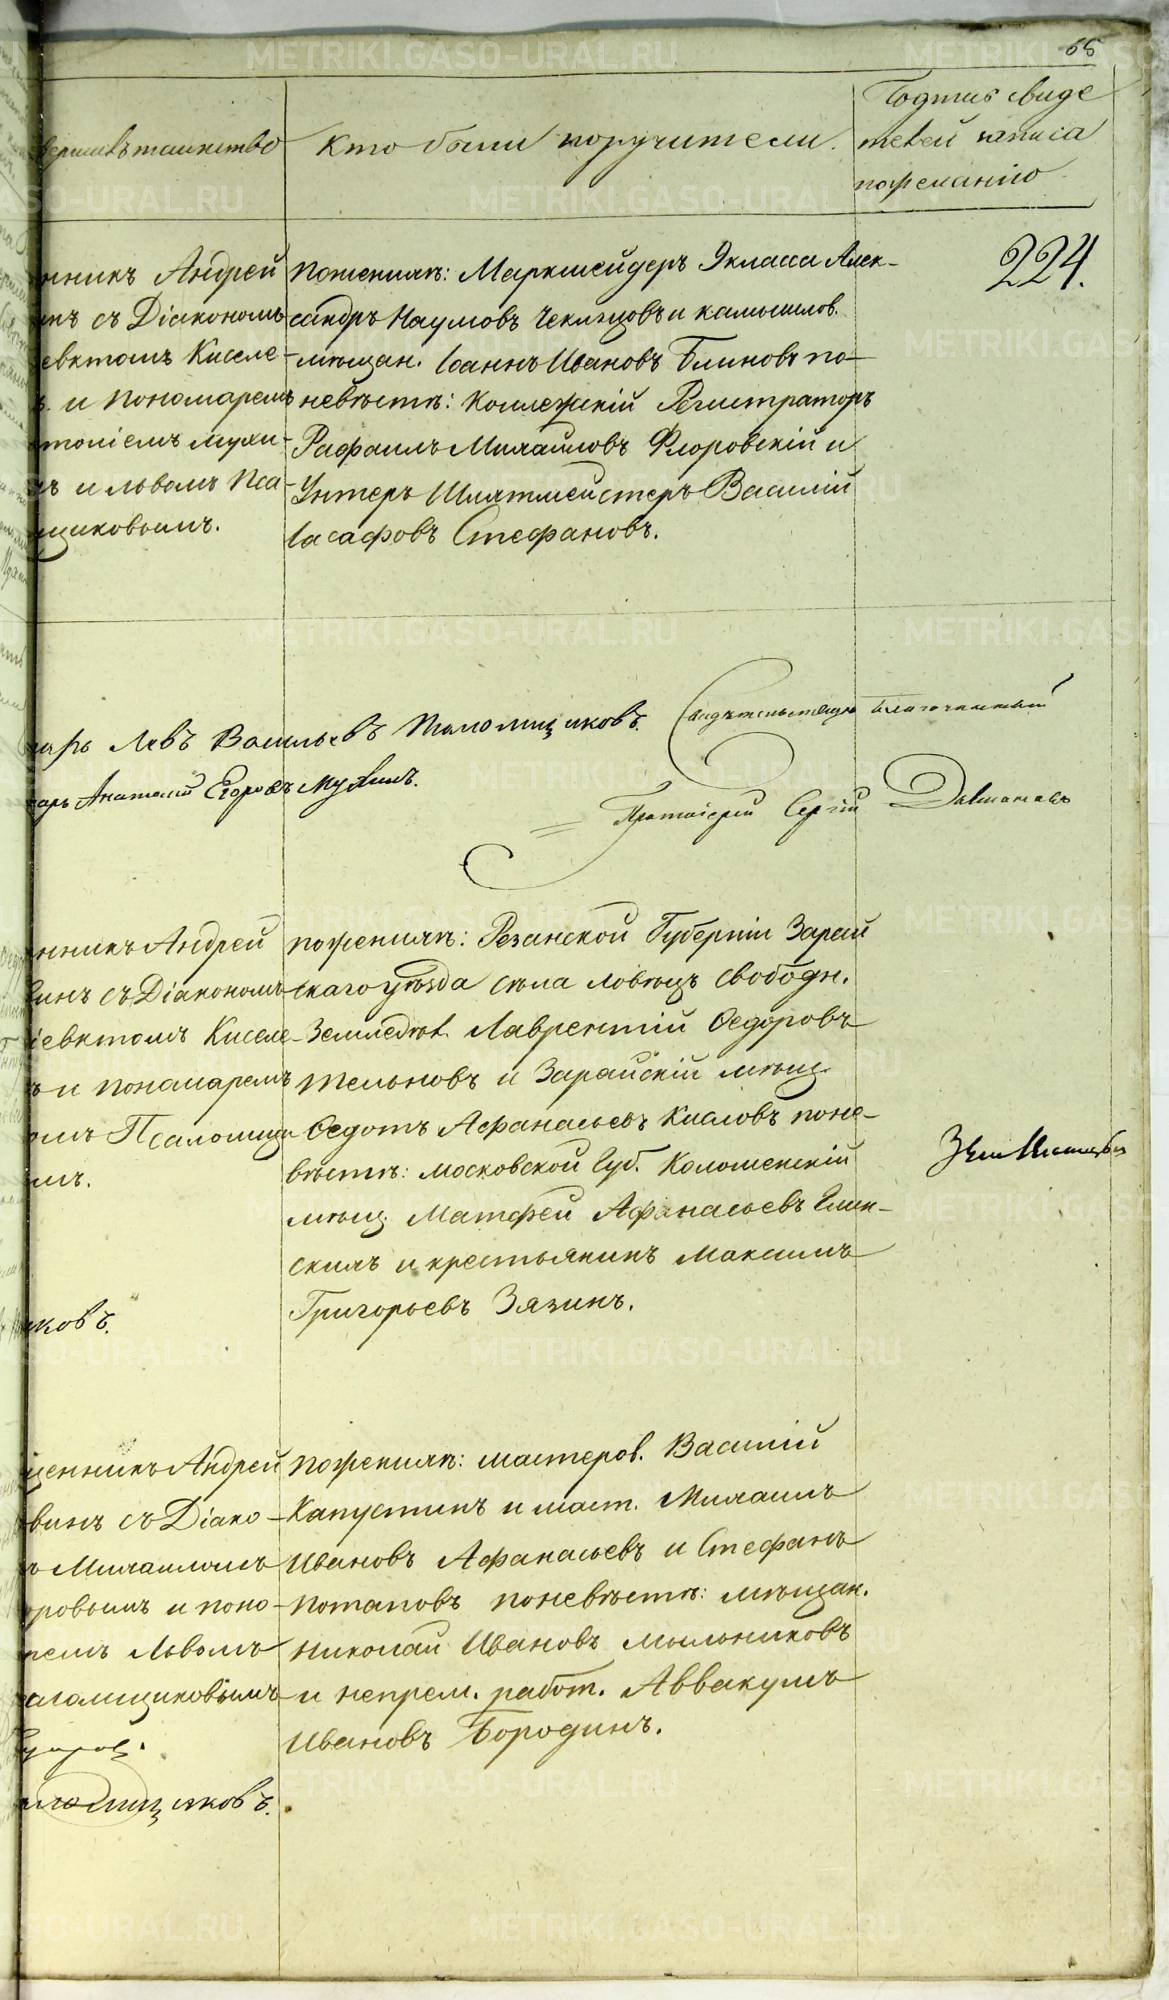 65
вершилъ таинство
Кто были поручители.
Подпись свиде
телей записа
по желанію
224.
нникъ Андрей
нъ съ Діакономъ
евктомъ Киселе-
и пономаремъ
томіемъ Мухи-
ъ и Львомъ Пса-
щиковымъ.
по женихѣ: Маркшейдеръ 9 класса Алек-
сандръ Наумовъ Чеклецовъ и камышлов.
мѣщан. Іоаннъ Ивановъ Блиновъ по
невѣстѣ: Коллежскій Регистраторъ
Рафаилъ Михайловъ Флоровскій и
Унтеръ Шихтмейстеръ Василій
Іасафовъ Стефановъ.
марь Левъ Васильевъ Псаломщиковъ.
марь Анатолій Егоровъ Мухинъ.
Свидѣтельствую Благочинный
Протоіерей Сергій
нникъ Андрей
инъ съ Діакономъ
іевктомъ Киселе-
ъ и пономаремъ
омъ Псаломщи
мъ.
ковъ.
по женихѣ: Резанской Губерніи Зарай
скаго уѣзда села Ловецъ свободн.
Земледѣл. Лаврентій Ѳедоровъ
Тельновъ и Зарайскій мѣщ.
Ѳедотъ Афанасьевъ Кисловъ по не-
вѣстѣ: Московской Губ. Коломенскій
мѣщ. Матфей Афанасьевъ Глин-
скимъ и крестьянинъ Максимъ
Григорьевъ Зязинъ.
щенникъ Андрей
винъ съ Діако-
ъ Михаиломъ
оровымъ и поно-
ремъ Львомъ
аломщиковымъ
ломщиковъ.
по женихѣ: мастеров. Василій
Капустинъ и маст. Михаилъ
Ивановъ Афанасьевъ и Стефанъ
Потаповъ по невѣстѣ: мѣщан.
Николай Ивановъ Мыльниковъ
и непрем. работ. Аввакумъ
Ивановъ Бородинъ.